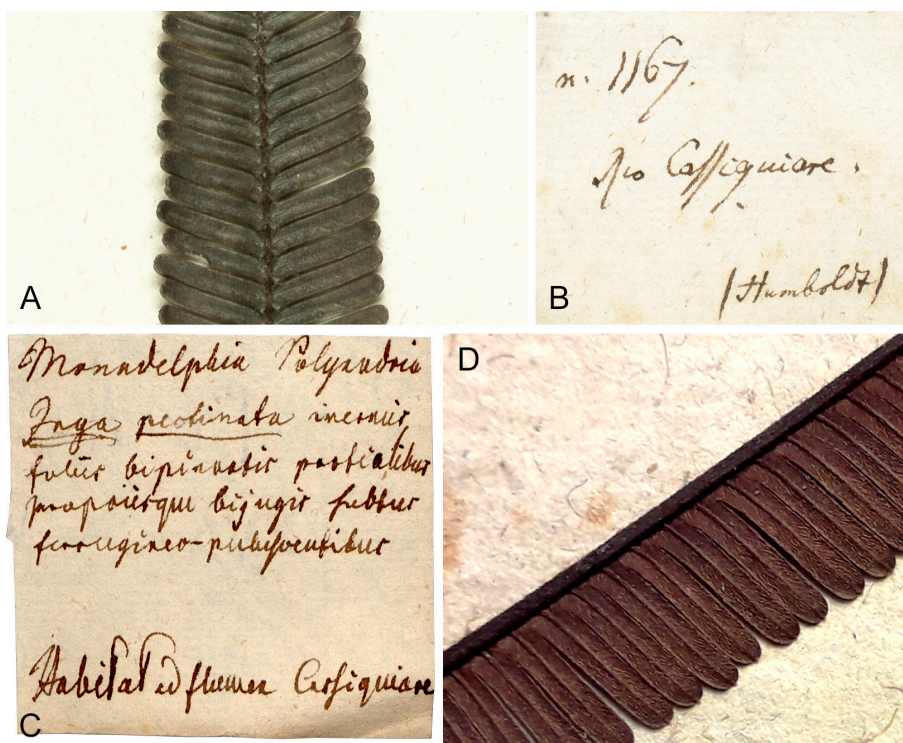 A
n. 1167.
Rio Cassiquiare.
B
(Humboldt)
D
Monadelphia Polyandria
Inga pectinata inermis
foliis bipinnatis partialibus
propriisque bijugis subtus
ferrugineo-pubescentibus
Habitat ad flumen Cassiquiare
C